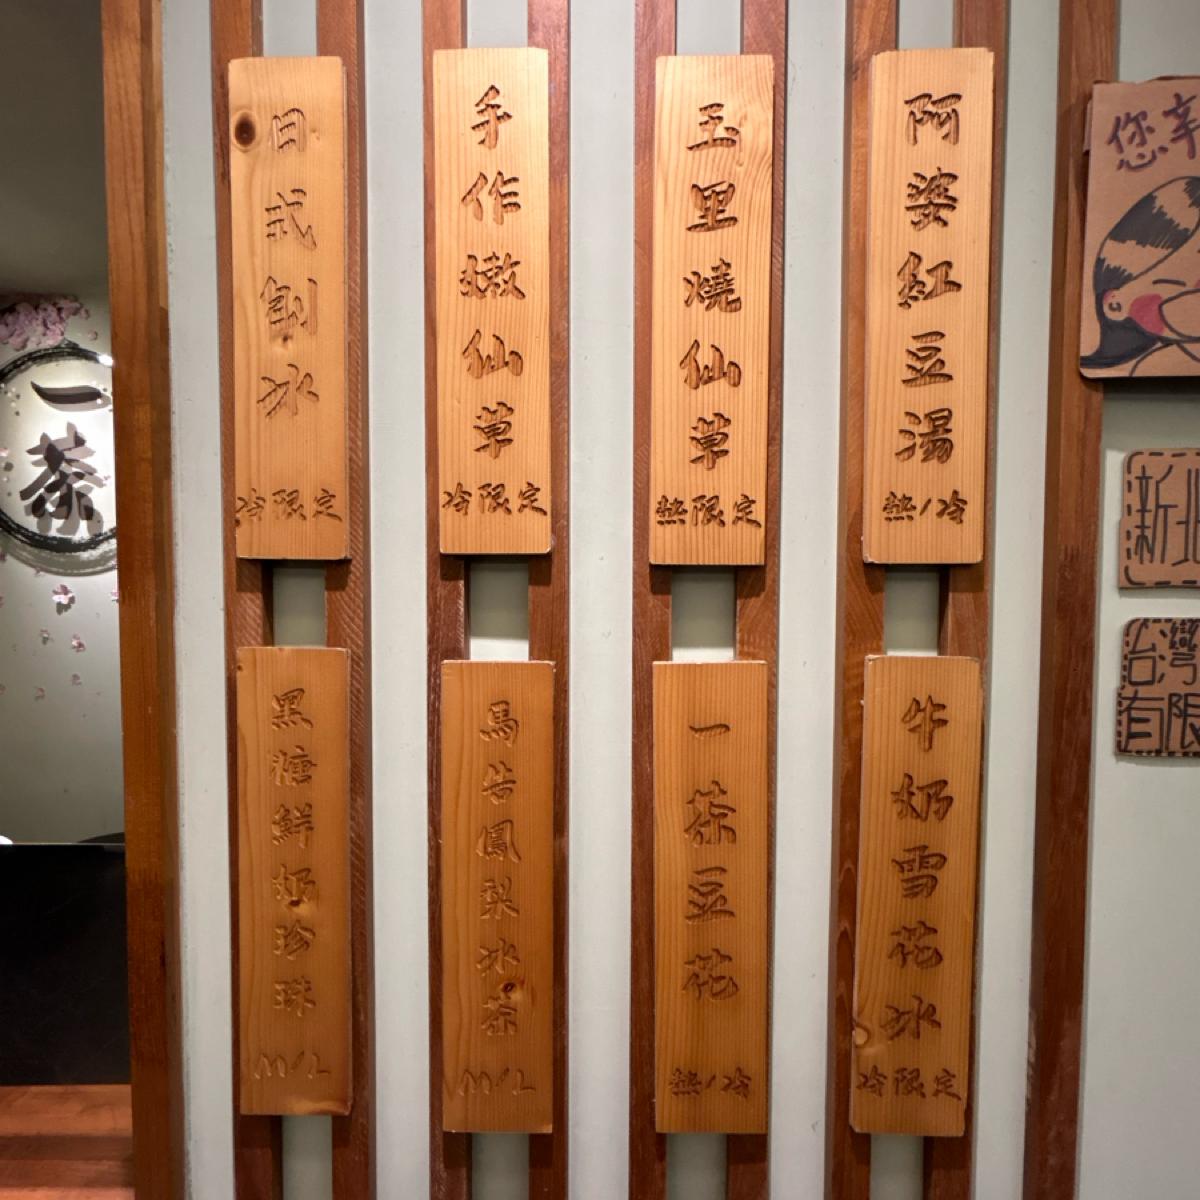 阿婆紅豆湯
熱/冷
玉里燒仙草
熱限定
手作嫩仙草
冷限定
日式刨冰
冷限定
牛奶雪花冰
冷限定
一茶豆花
熱/冷
馬告鳳梨冰茶
M/L
黑糖鮮奶珍珠
M/L
一茶
您辛
新北
台灣
有限